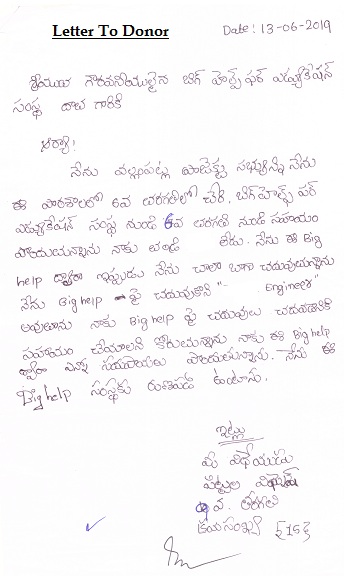 Letter To Donor
Date: 13-06-2019
శ్రీయుత గౌరవనీయులైన బిగ్ హెల్ప్ ఫర్ ఎడ్యుకేషన్
సంస్థ దాత గారికి
ఆర్యా!
నేను ప్రాజెక్టు సభ్యున్ని నేను
ఈ పాఠశాలలో 6వ తరగతిలో చేరి, బిగ్ హెల్ప్ ఫర్
ఎడ్యుకేషన్ సంస్థ నుండి 6వ తరగతి నుండి సహాయం
పొందుచున్నాను నాకు తండ్రి లేడు. నేను ఈ Big
help ద్వారా ఇప్పుడు నేను చాలా బాగా చదువుచున్నాను
నేను Big help పై చదువుకొని "- Engineer"
అవుతాను నాకు Big help పై చదువులు చదవడానికి
సహాయం చేయాలని కోరుచున్నాను నాకు ఈ Big help
ద్వారా ఎన్నో సదుపాయాలు పొందుచున్నాను. నేను ఈ
Big help సంస్థకు రుణపడి ఉంటాను.
ఇట్లు
మీ విధేయుడు
వ. తరగతి
క్రమసంఖ్య